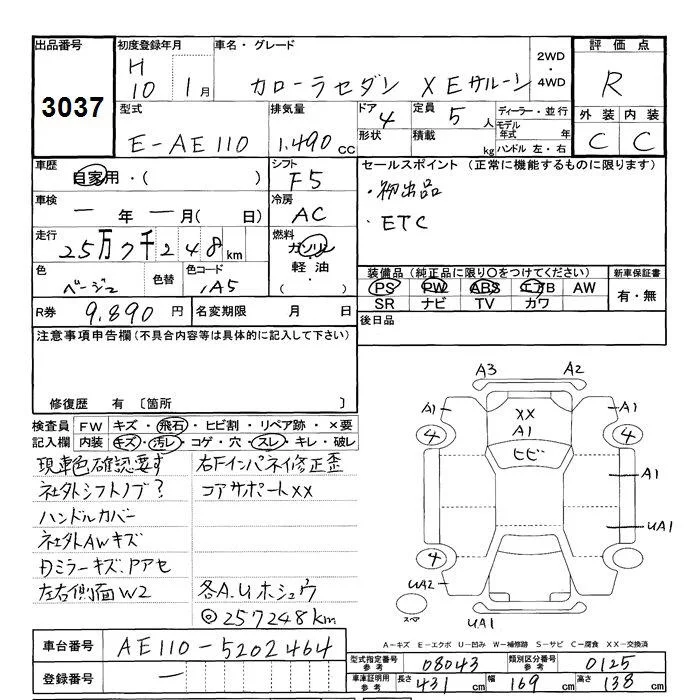 出品番号 3037
初度登録年月 H10年 1月
車名・グレード カローラセダン XEサルーン
2WD・4WD
評価点 R
外装 内装
C C
型式 E-AE110
排気量 1.490 CC
ドア 4
形状
定員 5 人
積載 kg
ディーラー・並行
モデル年式 年
ハンドル 左・右
車歴 自家用・( )
シフト F5
セールスポイント(正常に機能するものに限ります)
・初出品
・ETC
車検 一年一月( 日)
冷房 AC
走行 25万7千248km
燃料 ガソリン 軽油・( )
色 ベージュ
色替
色コード 1A5
装備品(純正品に限り○をつけてください)
PS PW ABS エアB AW
SR ナビ TV カワ
新車保証書 有・無
R券 9.890 円
名変期限 月 日
後日品
注意事項申告欄(不具合内容等は具体的に記入して下さい)
修復歴 有 〔箇所 〕
検査員記入欄
FW キズ・飛石・ヒビ割・リペア跡・×要
内装 キズ・汚レ・コゲ・穴・スレ・キレ・破レ
現車色確認要す
社外シフトノブ?
ハンドルカバー
社外AWキズ
Dミラーキズ、アアセ
左右側面W2
右Fインパネイ修正歪
コアサポートXX
各A.Uホシュウ
◎257248km
A3 A2
A1 XX A1
A1
4 ヒビ 4
A1
UA1
4
UA2
スペア
UA1
A-キズ E-エクボ U-凹み W-補修跡 S-サビ C-腐食 XX-交換済
車台番号 AE110-5202464
登録番号 一
型式指定番号 参考 08043
類別区分番号 参考 0125
車庫証明用 参考 長さ 431 cm 幅 169 cm 高さ 138 cm